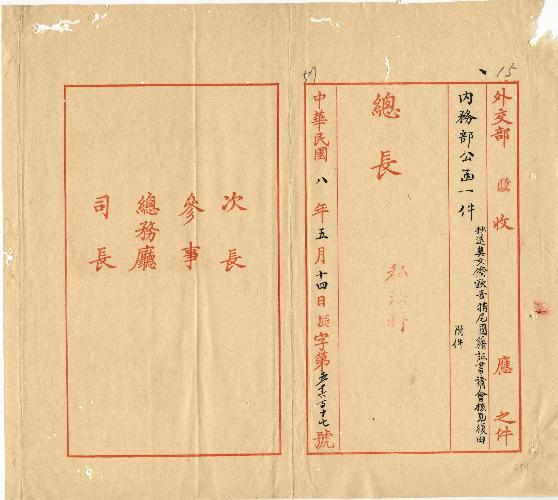 15
外交部 收 應 之件
内務部公函一件
抄送奧女僑歐音精尼國籍証書請會核見復由
附件
總長
57
中華民國八年五月十四日 字第 號
次長
參事
總務廳
司長